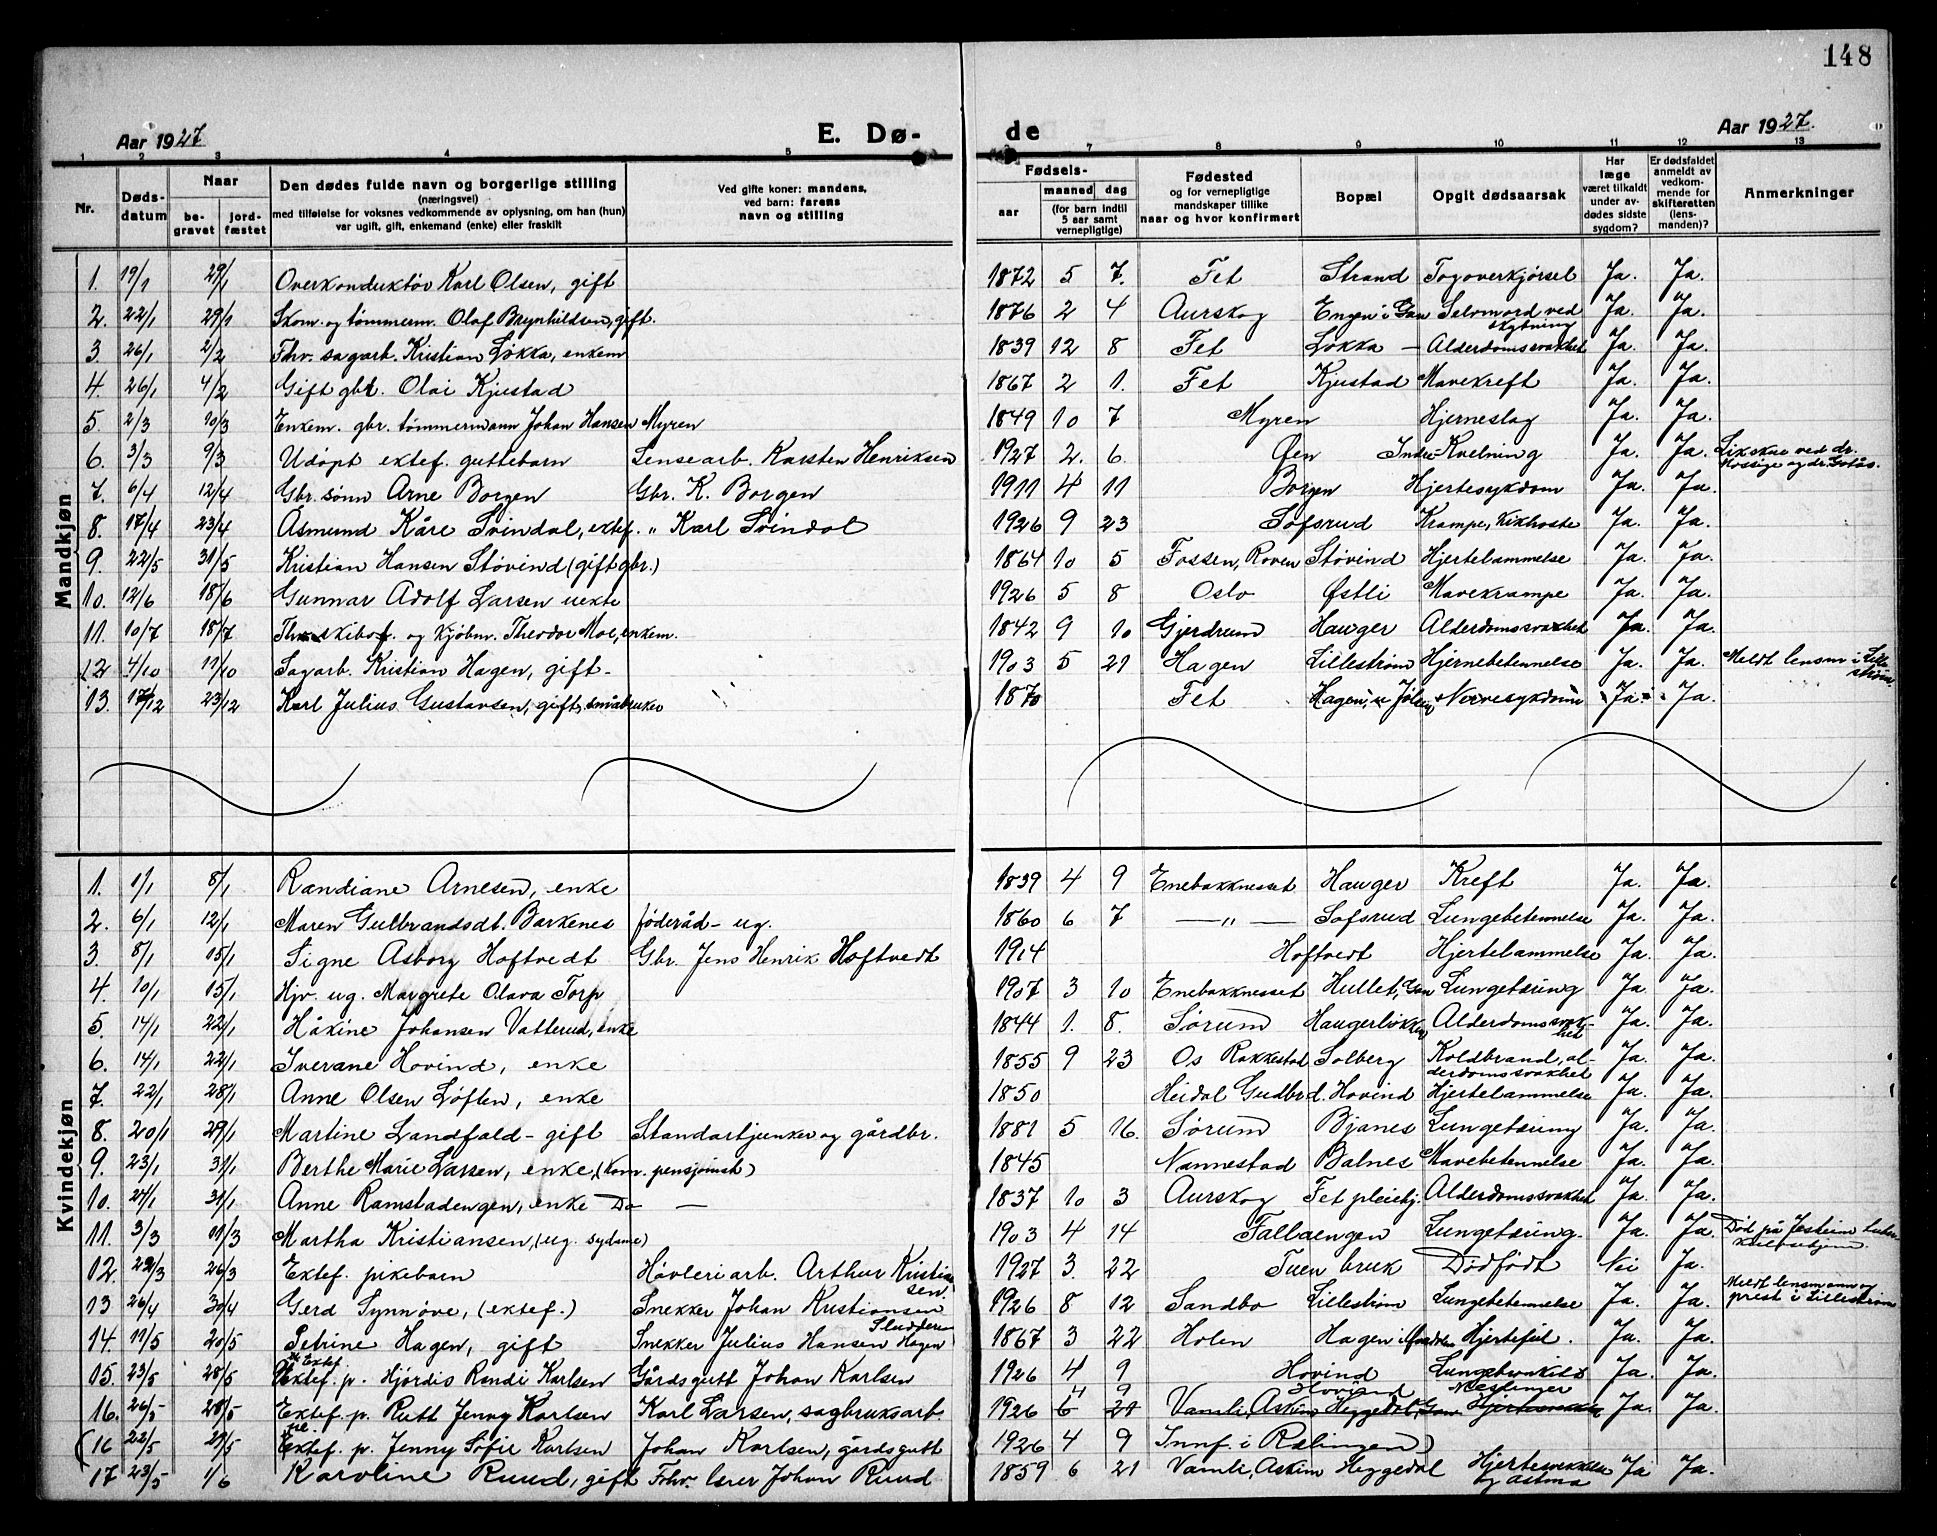 148
Aar 1927
E. Dø-
de
Aar 1927.
1 2 3 4 5 7 8 9 10 11 12 13
Nr.
Døds-
datum
Naar
be-
gravet
jord-
fæstet
Den dødes fulde navn og borgerlige stilling
(næringsvei)
med tilføielse for voksnes vedkommende av oplysning, om han (hun)
var ugift, gift, enkemand (enke) eller fraskilt
Ved gifte koner: mandens,
ved barn: farens
navn og stilling
Fødsels-
aar
maaned dag
(for barn indtil
5 aar samt
vernepligtige)
Fødested
og for vernepligtige
mandskaper tillike
naar og hvor konfirmert
Bopæl
Opgit dødsaarsak
Har
læge
været tilkaldt
under av-
dødes sidste
sygdom?
Er dødsfaldet
anmeldt av
vedkom-
mende for
skifteretten
(lens-
manden)?
Anmerkninger
Mandkjøn
1. 19/1 29/1 Overkonduktør Karl Olsen, gift 1872 5 7. Fet Strand Togoverkjørsel Ja. Ja.
2. 22/1 29/1 Skom. og tømmerm. Olaf Brynhildsen, gift. 1876 2 4 Aurskog Engen i Gan Selvmord ved skytning Ja. Ja.
3. 26/1 2/2 Fhv. sagarb. Kristian Løkka, enkem 1839 12 8 Fet Løkka – Alderdomssvakhet Ja. Ja.
4. 26/1 4/2 Gift gbr. Olai Kjustad 1867 2 1. Fet Kjustad Mavekreft Ja. Ja.
5. 2/3 10/3 Enkem. gbr. tømmermann Johan Hansen Myren 1849 10 7 Myren Hjerneslag Ja. Ja.
6. 3/3 9/3 Udøpt ektef. guttebarn Lensearb. Karsten Henriksen 1927 2. 6. Øen Indre Kvelning Ja. Ja. Likskue ved dr. Mossige og dr.
7. 6/4 12/4 Gbr. sønn Arne Borgen Gbr. K. Borgen 1911 4 11 Borgen Hjertesykdom Ja. Ja.
8. 17/4 23/4 Åsmund Kåre Svindal, ektef. " Karl Svindal 1926 9 23 Sofsrud Krampe, kikhoste Ja. Ja.
9. 22/5 31/5 Kristian Hansen Støvind (gift gbr.) 1864 10 5 Fossen, Roven Støvind Hjertelammelse Ja. Ja.
10. 12/6 18/6 Gunnar Adolf Larsen uekte 1926 5 8 Oslo Østli Mavekrampe Ja. Ja.
11. 10/7 18/7 og kjøbm. Theodor Moe, enkem. 1842 9 10 Gjerdrum Hauger Alderdomssvakhet Ja. Ja.
12 4/10 11/10 Sagarb. Kristian Hagen, gift – 1903 5 21 Hagen Lillestrøm Hjernebetennelse Ja. Ja. Meldt lensm i Lillestrøm
13. 17/12 23/12 Karl Julius Gustavsen, gift, småbruker 1870 Fet Hagen, Nervesykdom Ja. Ja.
Kvindekjøn
1. 1/1 8/1 Randiane Arnesen, enke 1839 4 9 Enebakkneset Hauger Kreft Ja. Ja.
2. 6/1 12/1 Maren Gulbrandsdt. Barkenes føderåd – ug. 1860 6 7 — " — Sofsrud Lungebetennelse Ja. Ja.
3. 8/1 15/1 Signe Asborg Hoftvedt Gbr. Jens Henrik Hoftvedt 1914 Hoftvedt Hjertelammelse Ja. Ja.
4. 10/1 15/1 Hjv. ug. Margrete Olava Torp 1907 3 10 Enebakkneset Hullet, Gan Lungetæring Ja. Ja.
5. 14/1 22/1 Håkine Johansen Vatterud, enke 1844 1. 8. Sørum Haugerløkken Alderdomssvakhet Ja. Ja.
6. 14/1 22/1 Iverane Hovind, enke 1855 9 23 Os Rakkestad Solberg Koldbrand, alderdomssvakhet Ja. Ja.
7. 22/1 28/1 Anne Olsen Løften, enke 1850 Heidal Gudbr.d. Hovind Hjertelammelse Ja. Ja.
8. 20/1 29/1 Martine Landfald – gift Standartjunker og gårdbr. 1881 5 16. Sørum Bjanes Lungetæring Ja. Ja.
9. 23/1 31/1 Berthe Marie Larsen, enke, (kom. pensjonist) 1845 Nannestad Balnes Mavebetennelse Ja. Ja.
10. 24/1 31/1 Anne Ramstadengen, enke Do — 1837 10 3 Aurskog Fet pleiehj. Alderdomssvakhet Ja. Ja.
11. 3/3 11/3 Martha Kristiansen, (ug. sydame) 1903 4 14 Fallaengen Lungetæring. Ja. Ja. Død på Jesheim
12. 22/3 26/3 Ektef. pikebarn Høvleriarb. Arthur Kristiansen. 1927 3. 22 Tuen bruk Dødfødt Nei Ja.
13 26/4 30/4 Gerd Synnøve, (ektef.) Snekker Johan Kristiansen 1926 8 12 Sandbo Lillestrøm Lungebetennelse Ja. Ja. Meldt lensmann og prest i Lillestrøm
14. 11/5 20/5 Petrine Hagen, gift Snekker Julius Hansen Hagen 1867 3 22 Holen Hagen i Hjertefeil. Ja. Ja.
15. 23/5 28/5 Ektef. p. Hjørdis Randi Karlsen Gårdsgutt Johan Karlsen 1926 4 9 Hovind Ja. Ja.
16. 26/5 28/5 Ektef. p. Rutt Jenny Karlsen Karl Larsen, sagbruksarb. 1926 4 9 Hovind Meslinger Vamli, Askim Heggedal, Gan Ja. Ja.
(16 22/5 27/5 Ektef. p. Jenny Sofie Karlsen Johan Karlsen, gårdsgutt 1926 4 9 Innf. i Rælingen)
17 23/5 1/6 Karoline Ruud, gift Fhv. lærer Johan Ruud 1859 6 21 Vamli, Askim Heggedal Hjertesvekkelse og astma Ja Ja.